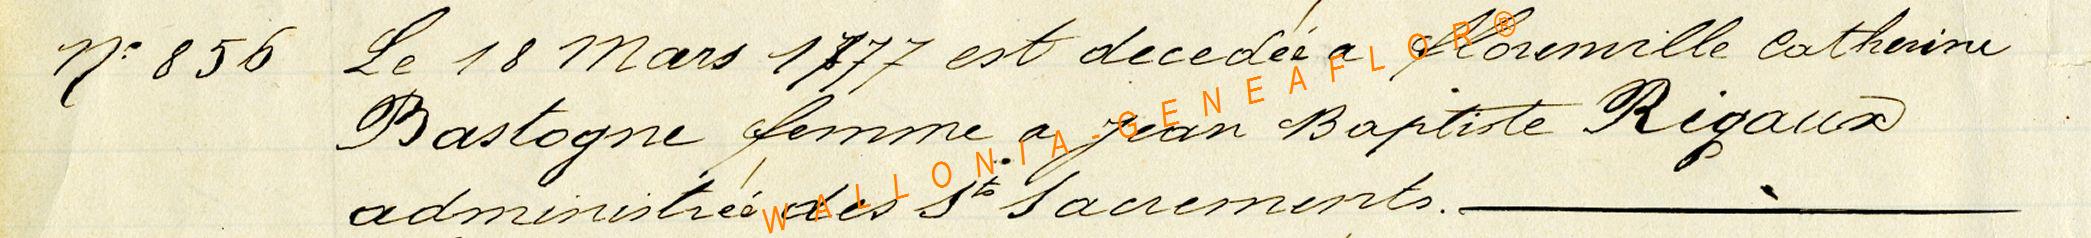 N° 856 Le 18 Mars 1777 est decedée a florenville Catherine
Bastogne femme a jean Baptiste Rigaux
administrée des Sts Sacrements.
WALLONIA-GENEAFLOR®